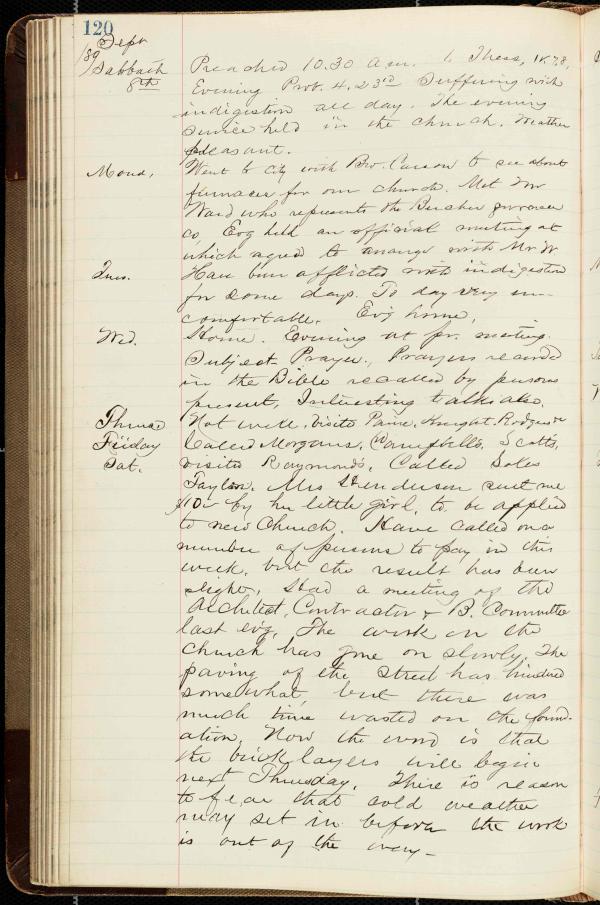 120
Sept
/89
Sabbath Preached 10.30 A.m. 1. Thess, 1.
8th Evening Prov. 4.23rd Suffering with
indigestion all day. The evening
service held in the church. Weather
pleasant.
Mond, Went to city with Bro. Carson to see about
furnaces for our church. Met Mr
Ward who represents the furnace
co, Evg held an official meeting at
which agreed to arrange with Mr. W
Tues. Have been afflicted with indigestion
for some days. To day very un-
comfortable. Evg home,
Wed. Home. Evening at pr. meeting.
Subject Prayer, Prayers record
in the Bible recalled by persons
present, Interesting talks also.
Thursd Not well, Visits Paine, Knight, Rodgers
Friday Called Morgans, Campbells, Scotts,
Sat. visited Raymonds, Called
Taylor, Mrs Henderson sent me
by her little girl, to be applied
to new Church. Have called on a
number of persons to pay in this
week, but the result has been
slight, Had a meeting of the
Architect, Contractor & B. Committee
last evg, The work on the
church has gone on slowly, The
paving of the street has hindred
somewhat, but there was
much time wasted on the found-
ation, Now the word is that
the brick layers will begin
next Thursday, There is reason
to fear that cold weather
may set in before the work
is out of the way-